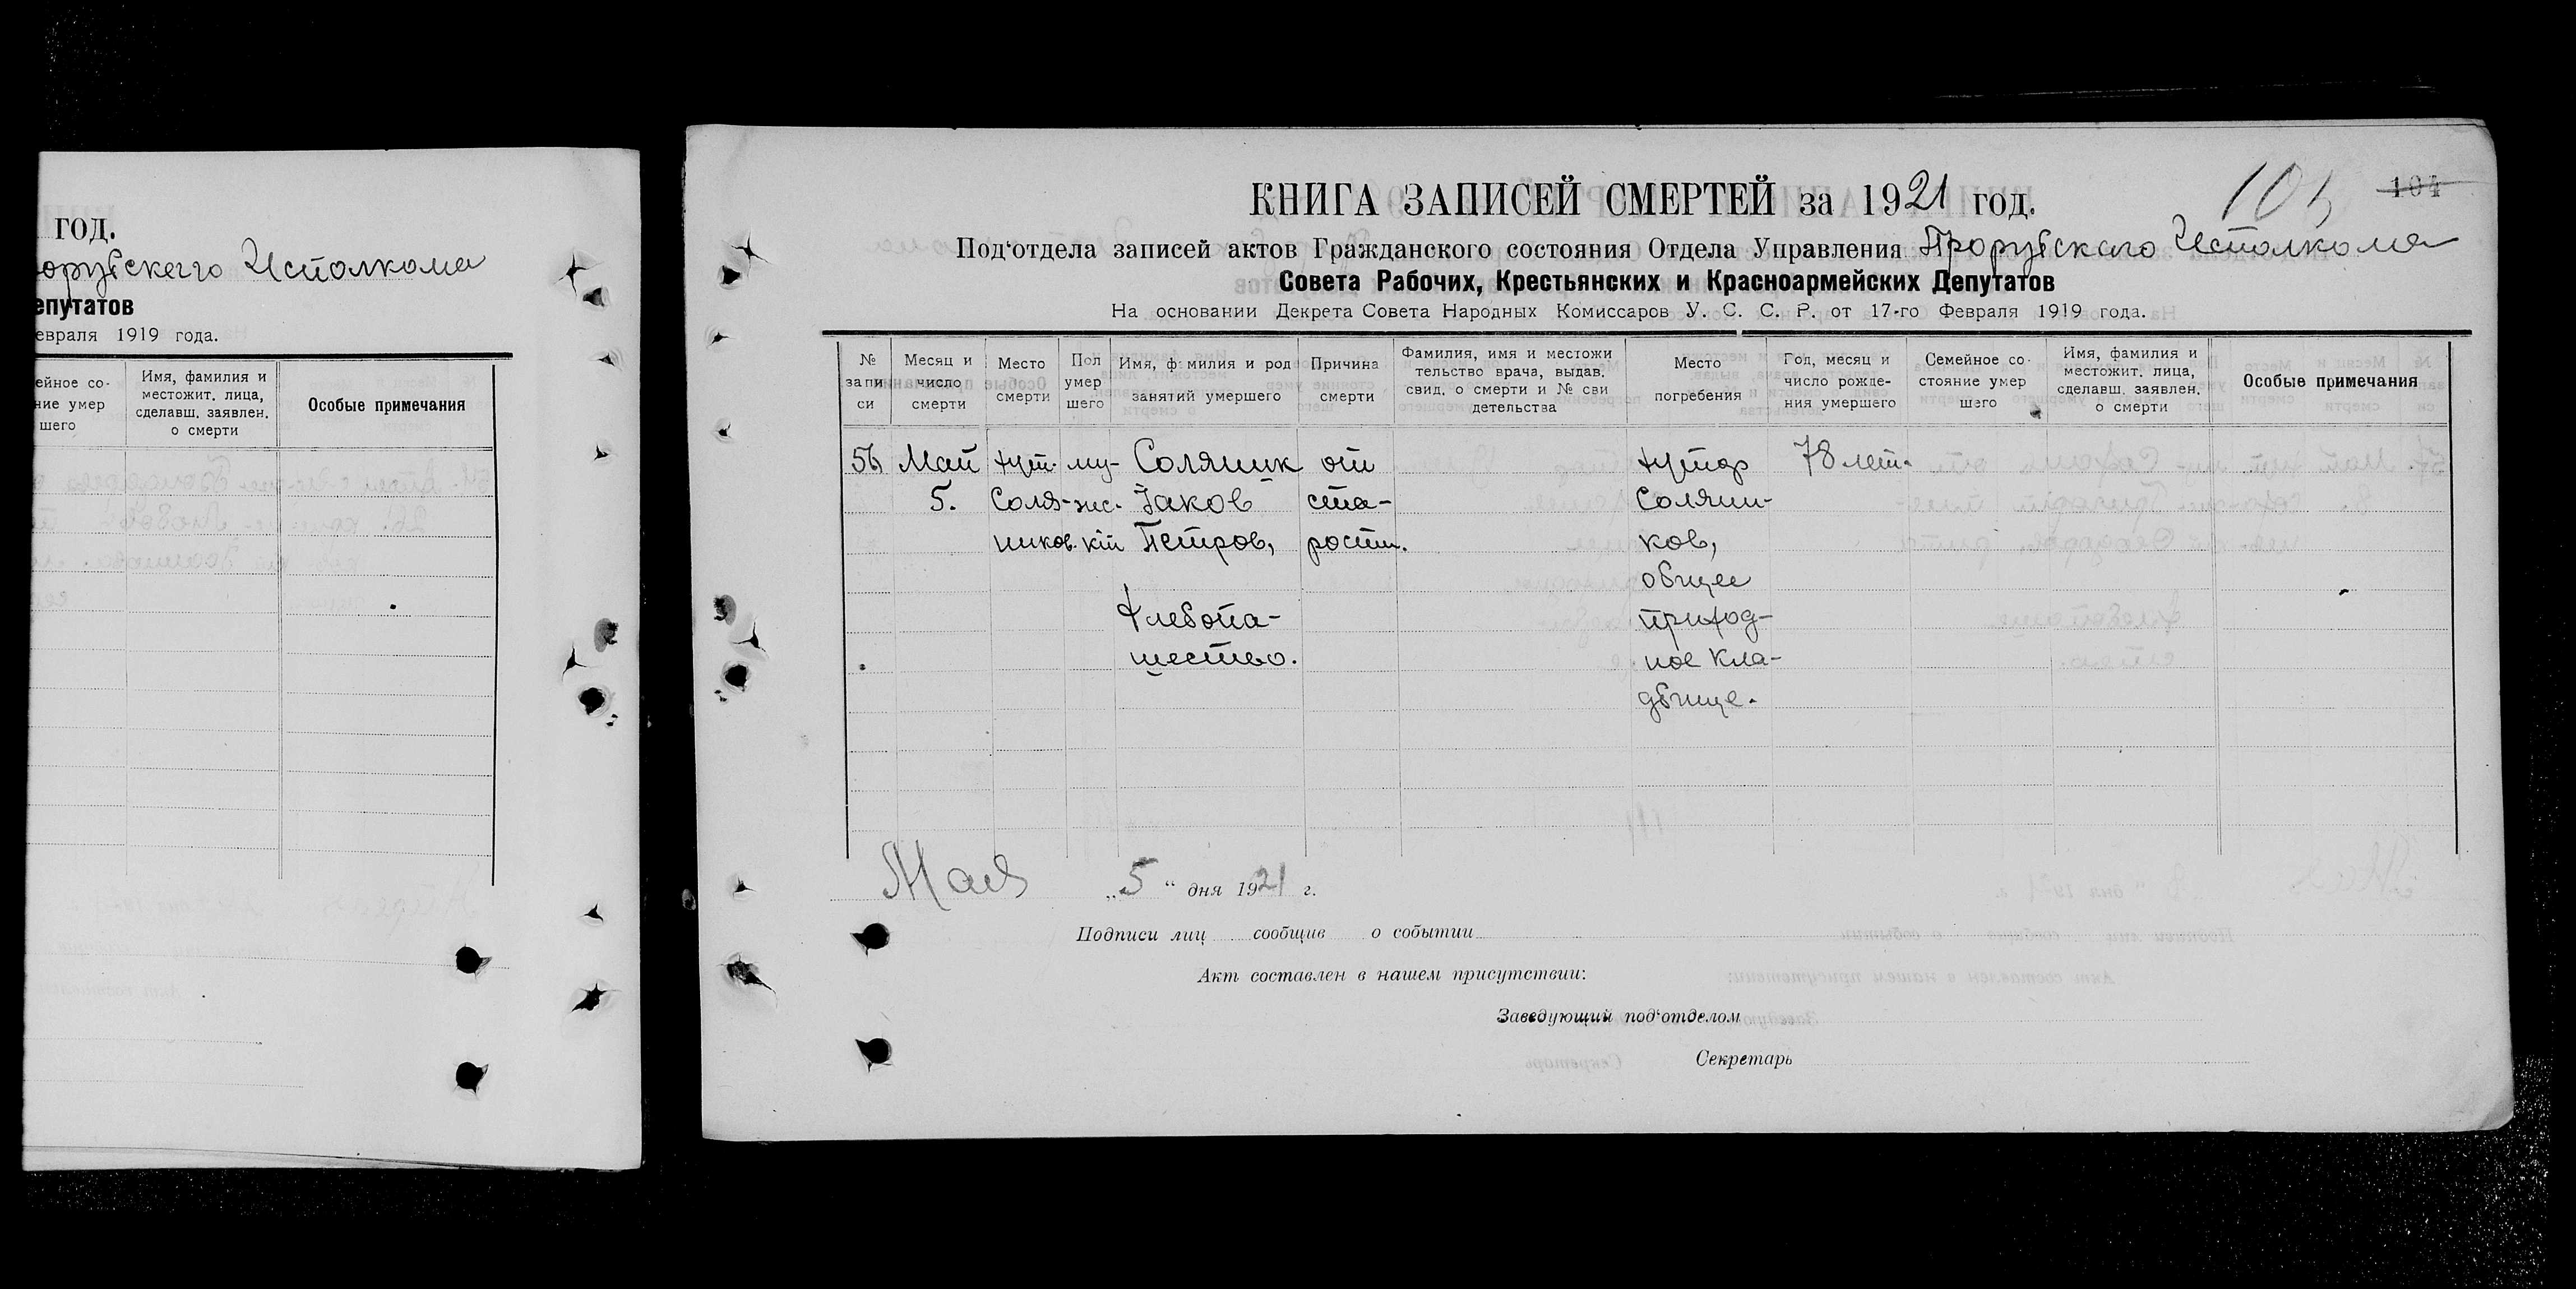 год.
орубскаго Исполкома
епутатов
евраля 1919 года.
ейное со-
ние умер
шего
Имя, фамилия и
местожит. лица,
сделавш. заявлен.
о смерти
Особые примечания
КНИГА ЗАПИСЕЙ СМЕРТЕЙ за 1921 год.
105
104
Под‘отдела записей актов Гражданского состояния Отдела Управления Прорубскаго Исполкома
Совета Рабочих, Крестьянских и Красноармейских Депутатов
На основании Декрета Совета Народных Комиссаров У. С. С. Р. от 17-го Февраля 1919 года.
№
запи
си
Месяц и
число
смерти
Место
смерти
Пол
умер
шего
Имя, фамилия и род
занятий умершего
Причина
смерти
Фамилия, имя и местожи
тельство врача, выдав.
свид. о смерти и № сви
детельства
Место
погребения
Год, месяц и
число рожде-
ния умершего
Семейное со-
стояние умер
шего
Имя, фамилия и
местожит. лица,
сделавш. заявлен.
о смерти
Особые примечания
56
Май
5.
хут.
Соля-
ников.
му-
жс.
кій
Соляник
Іаков
Петров,
Хлебопа-
шество.
от
ста-
рости.
хутор
Соляни-
ков,
общее
приход-
ное кла-
дбище.
78 лет.
Мая „5“ дня 1921 г.
Подписи лиц сообщив о событии
Акт составлен в нашем присутствии:
Заведующий под‘отделом
Секретарь